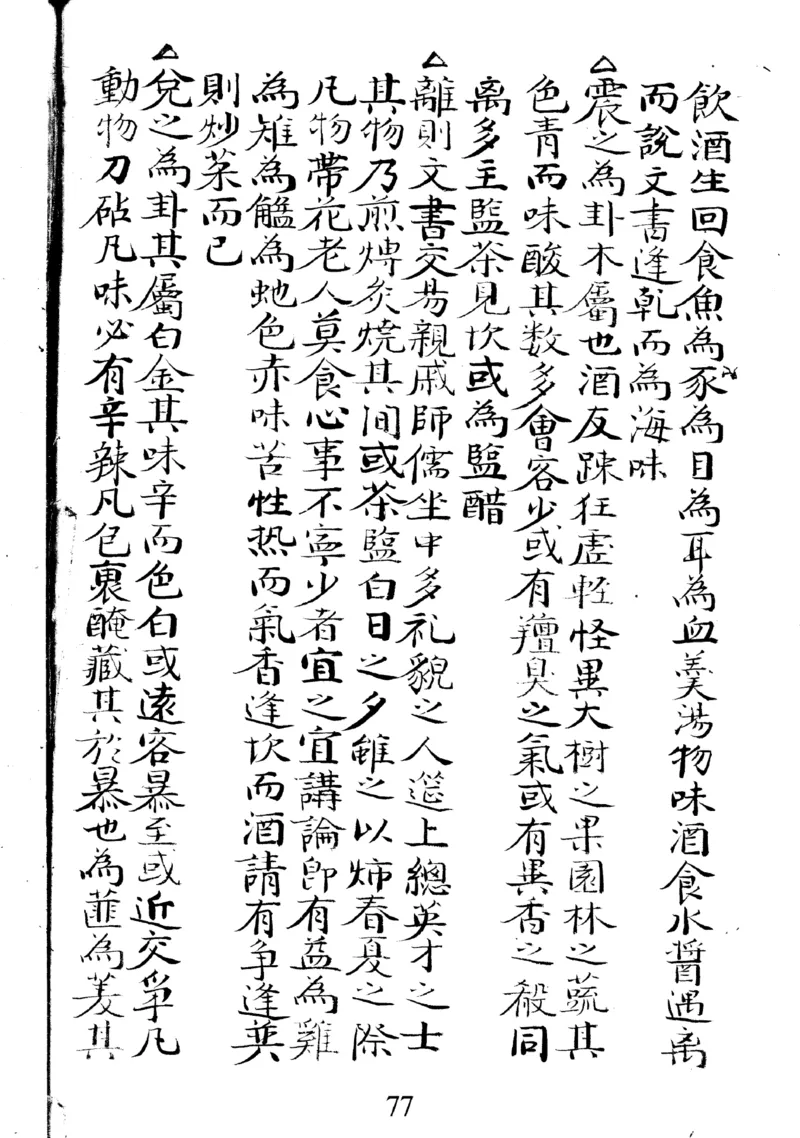 飲酒生回食魚為豕為目為耳為血羹湯物味酒食水醬遇离
而說文書逢乾而為海味
△震之為卦木屬也酒友踈狂虛輕怪異大樹之果園林之蔬其
色青而味酸其数多會客少或有羶臭之氣或有異香之殽同
离多主盬茶見坎或為盬醋
△離則文書交易親戚師儒坐中多礼貌之人筵上總英才之士
其物乃煎煿炙燒其间或茶盬白日之夕雖之以炳春夏之際
凡物帶花老人莫食心事不寧少者宜之宜講論即有益為雞
為雉為為虵色赤味苦性热而氣香逢坎而酒請有争逢英
則炒菜而已
△兌之為卦其屬白金其味辛而色白或遠客暴至或近交爭凡
動物刀砧凡味必有辛辣凡包裹醃藏其於暴也為為菱其
77